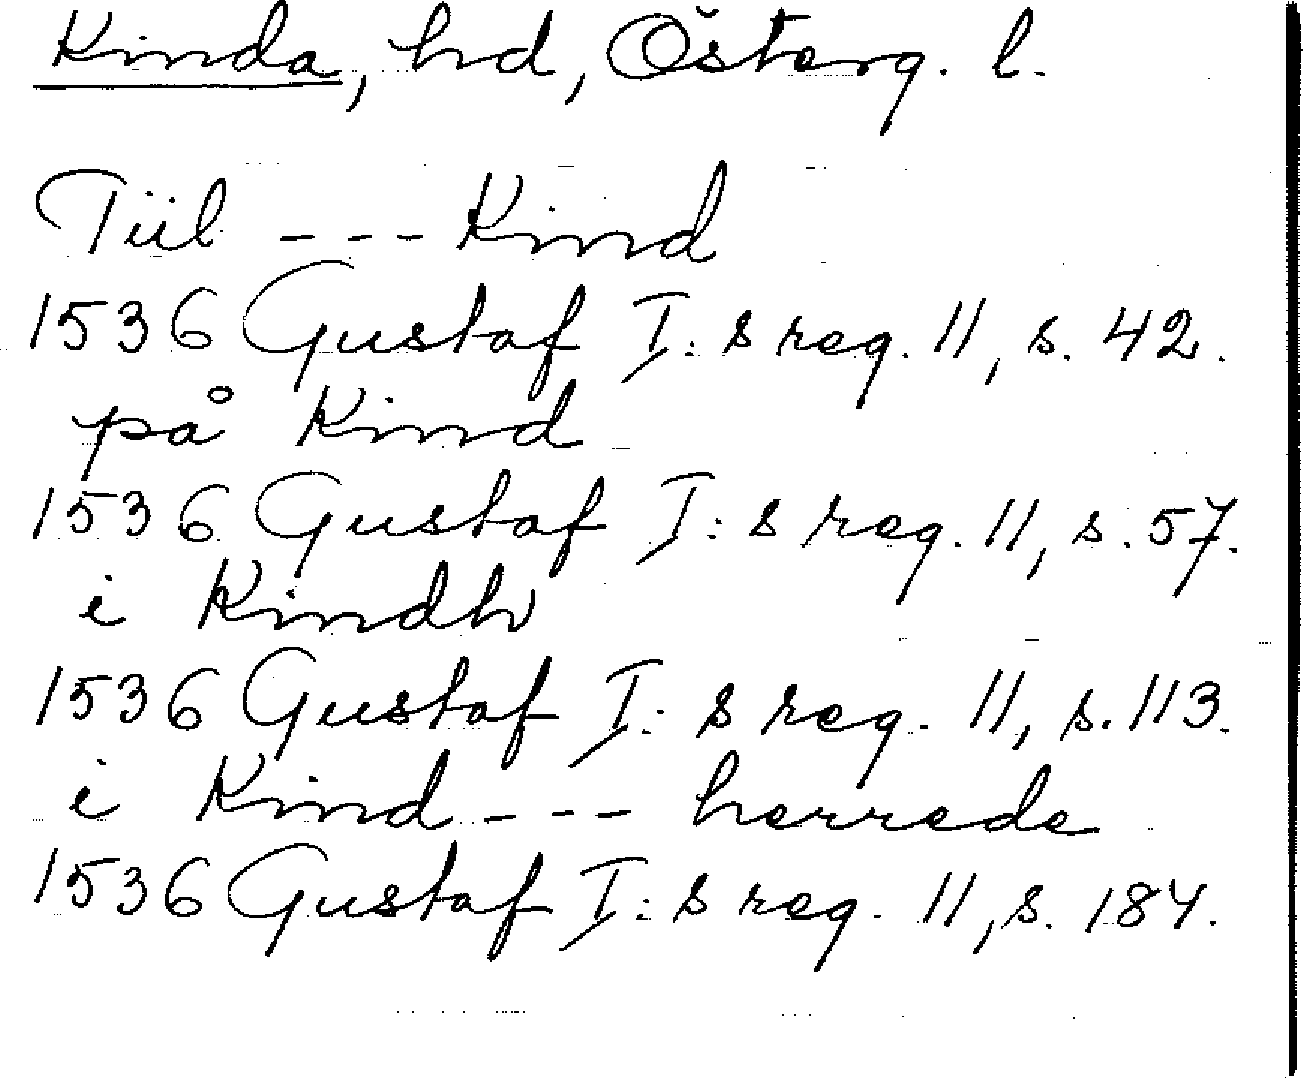 Kinda, hd, Österg. l.
Tiil --- Kind
1536 Gustaf I:s reg. 11, s. 42.
på Kind
1536 Gustaf I:s reg. 11, s. 57.
i Kindh
1536 Gustaf I:s reg. 11, s. 113.
i Kind --- herrede
1536 Gustaf I:s reg. 11, s. 184.